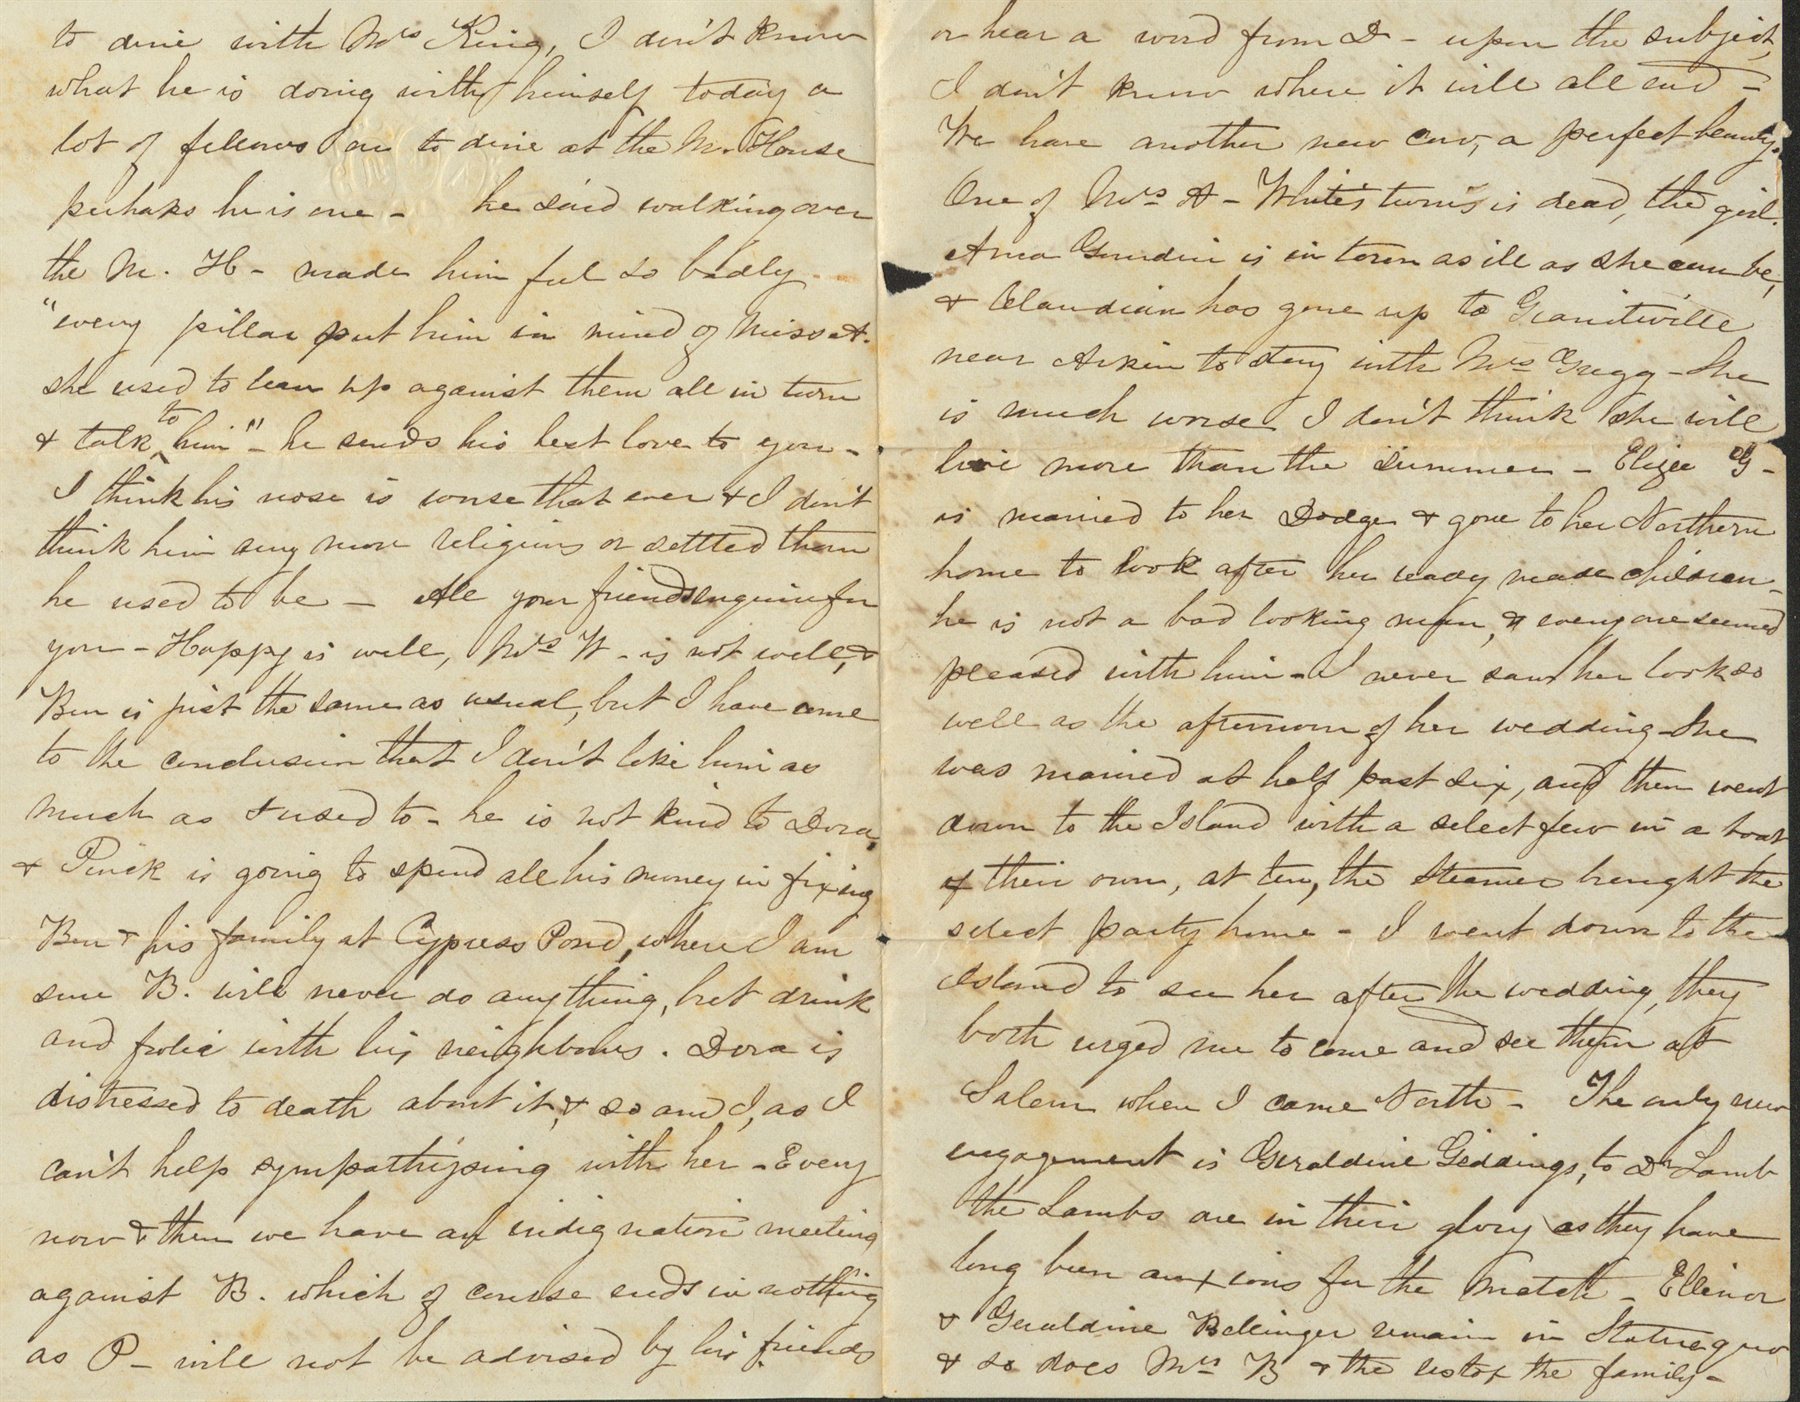 to dine with Mrs King, I don't know
what he is doing with himself today a
lot of fellows are to dine at the M. House
perhaps he is one - he said walking over
the M. H - made him feel so badly
"every pillar put him in mind of Miss A.
she used to lean up against them all in turn
& talk to him" - he sends his best love to you -
I think his nose is worse that ever & I don't
think him any more religious or settled than
he used to be - All your friends enquire for
you - Happy is well, Mrs W - is not well, &
Ben is just the same as usual, but I have come
to the conclusion that I don't like him as
much as I used to - he is not kind to Dora,
& Pinck is going to spend all his money in fixing
Ben & his family at Cypress Pond, where I am
sure B. will never do anything, but drink
and frolic with his neighbours. Dora is
distressed to death about it, & so am I, as I
can't help sympathising with her - Every
now & then we have an indignation meeting
against B. which of course ends in nothing
as P - will not be advised by his friends
or hear a word from D - upon the subject,
I don't know where it will all end -
We have another new cow, a perfect beauty.
One of Mrs A - White's twins is dead, the girl.
Anna Gourdin is in town as ill as she can be,
& Claudian has gone up to Graniteville
near Aiken to stay with Mrs Gregg - She
is much worse I don't think she will
live more than the summer - Eliza G -
is married to her Dodge & gone to her Northern
home to look after her ready made children -
he is not a bad looking man, & every one seemed
pleased with him - I never saw her look so
well as the afternoon of her wedding - She
was married at half past six, and then went
down to the Island with a select few in a boat
of their own, at ten, the Steamer brought the
select party home - I went down to the
Island to see her after the wedding, they
both urged me to come and see them at
Salem when I came North - The only new
engagement is Geraldine Giddings, to Dr Lamb
the Lambs are in their glory as they have
long been anxious for the match - Ellinor
& Geraldine Bellinger remain in Statu quo
& so does Mrs B & the rest of the family -